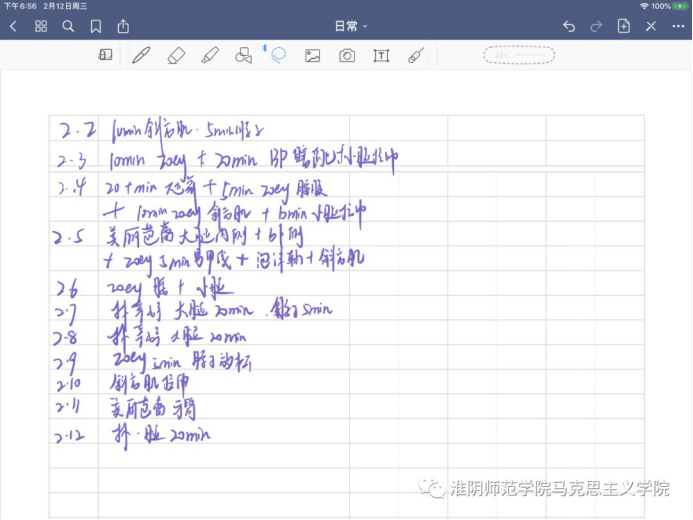 下午6:56 2月12日周三
100%
日常
abc
2.2 10min 斜方肌·5min脖子
2.3 10min zoey + 20min BP 小腿拉伸
2.4 20+min + 5min zoey 腰腹
+ 10min zoey 斜方肌 + 6min 小腿拉伸
2.5 美丽芭蕾大腿内侧 + 外侧
+ zoey 5min 肩甲线 + 泡沫轴 + 斜方肌
2.6 zoey 腰 + 小腿
2.7 大腿 20min. 5min
2.8 大腿 20min
2.9 zoey 5min 脖子放松
2.10 斜方肌拉伸
2.11 美丽芭蕾
2.12 腿 20min
淮阴师范学院马克思主义学院